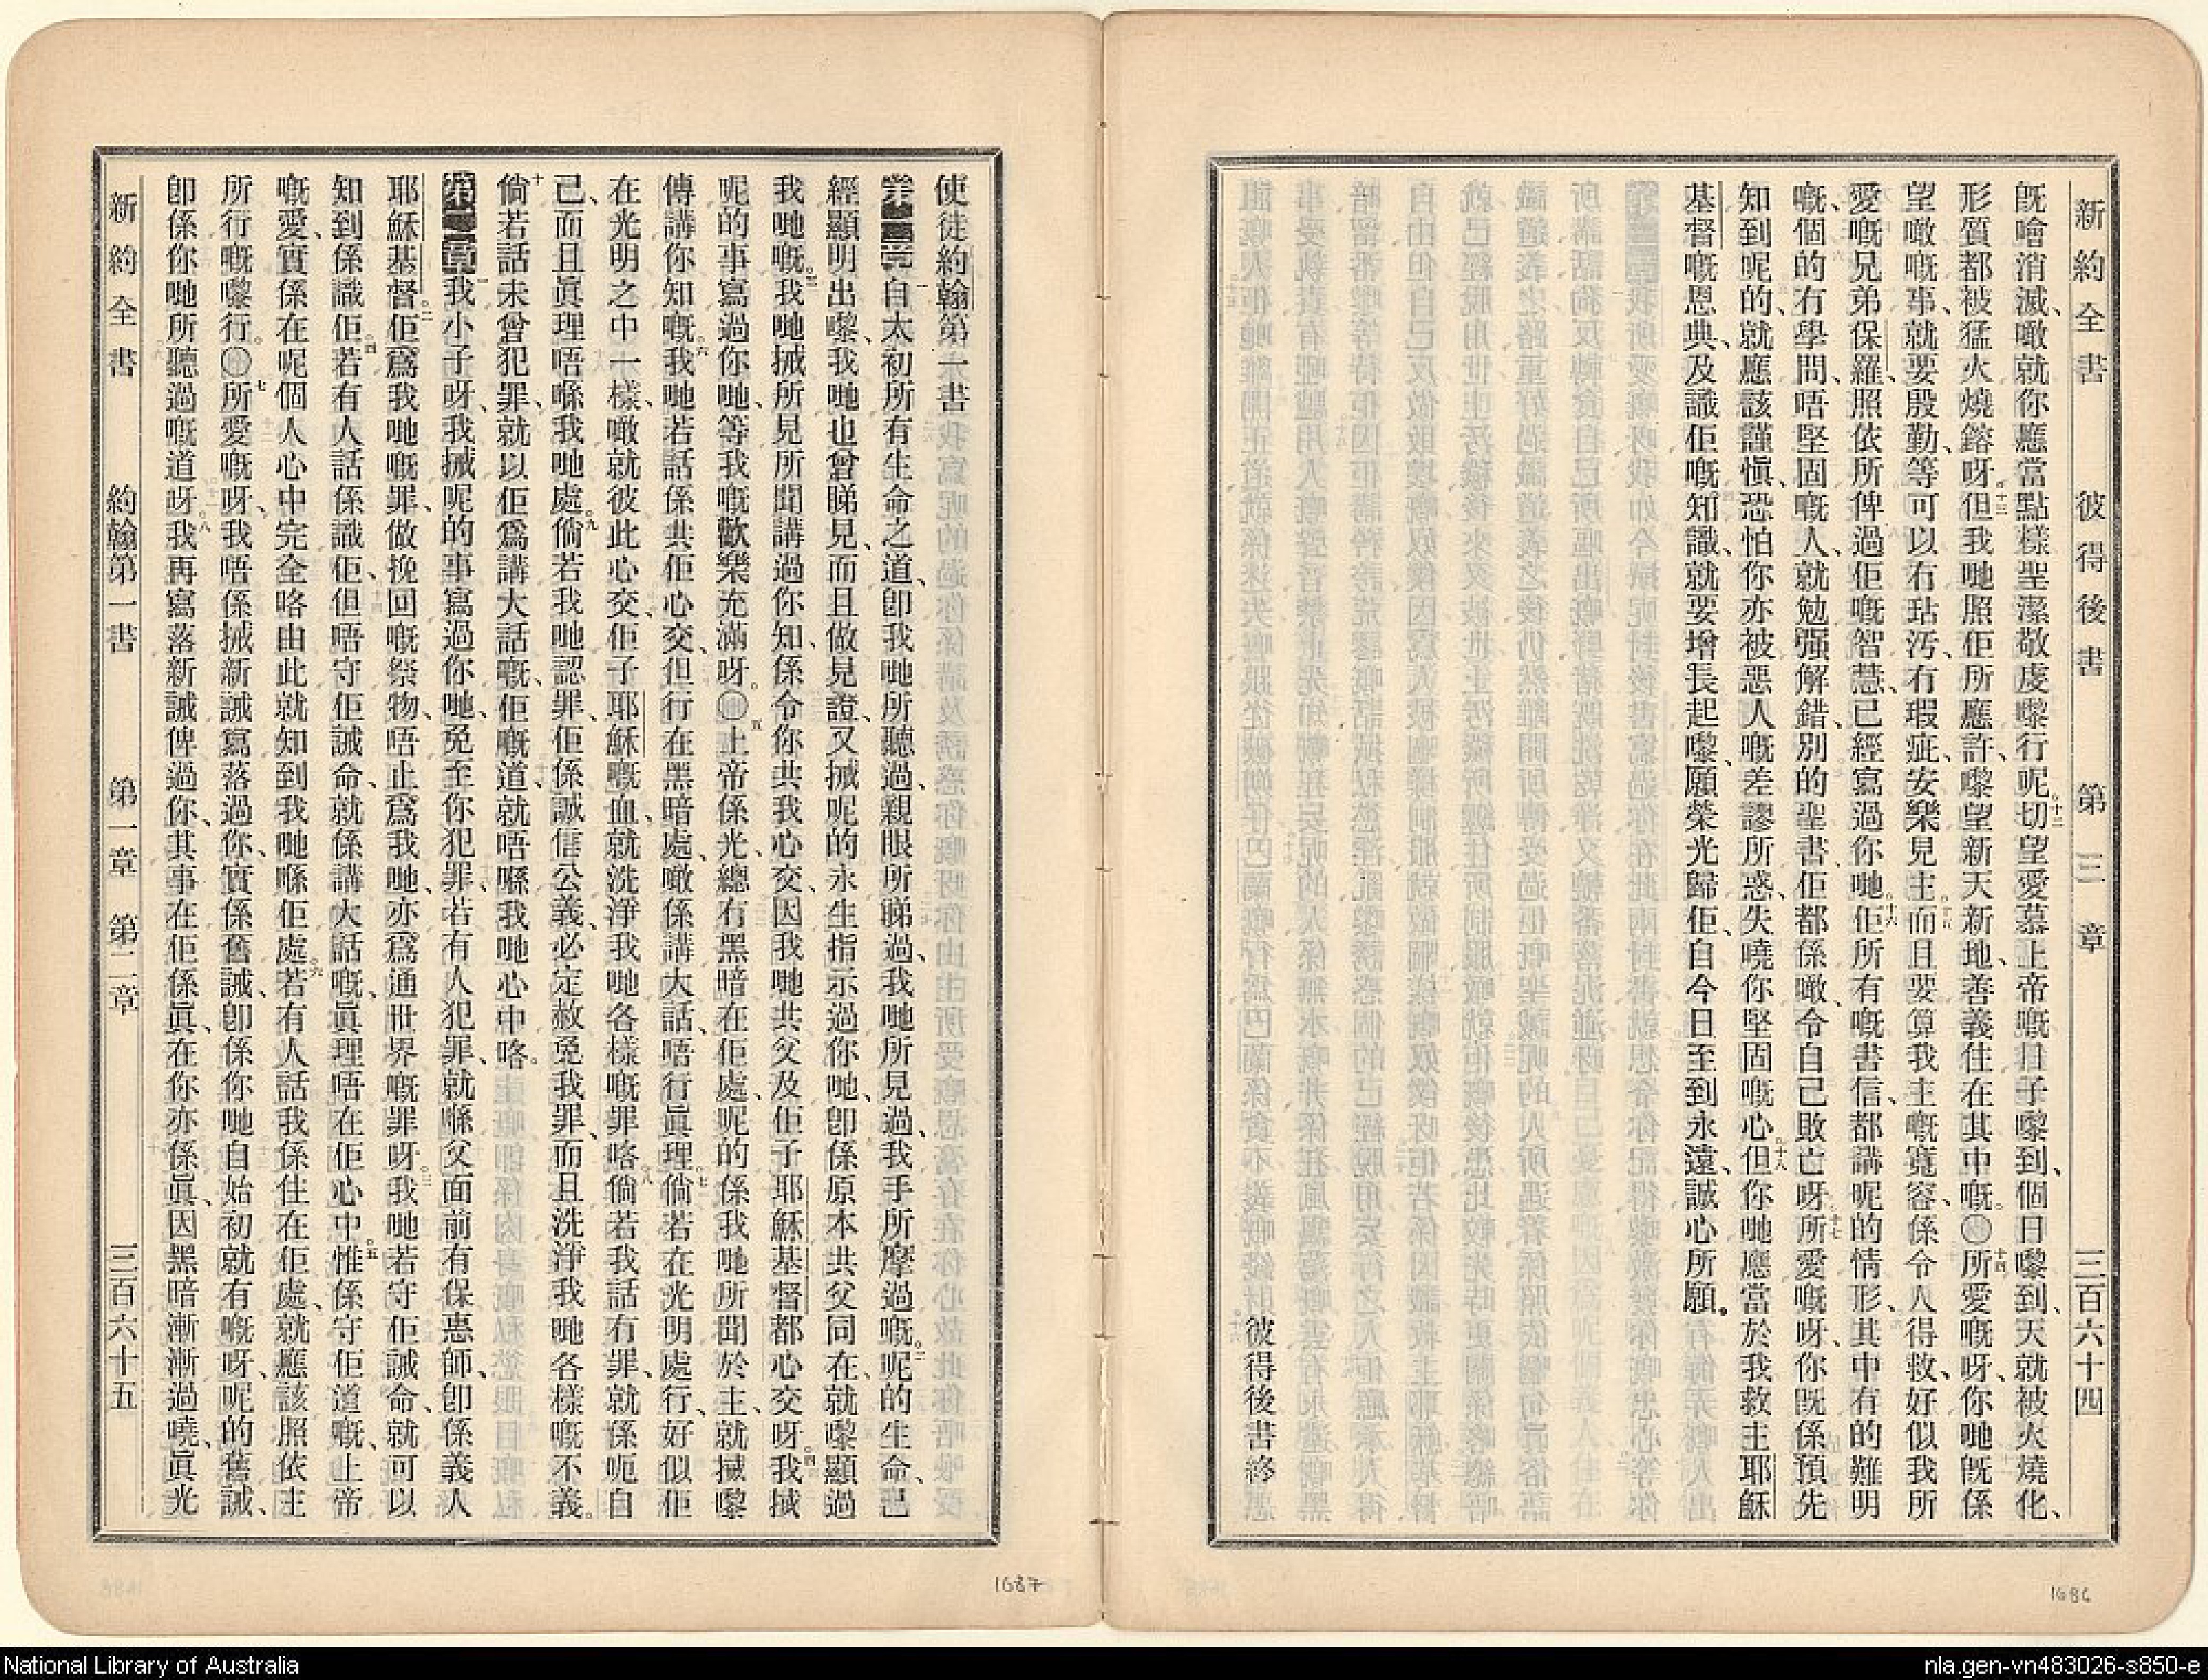 新約全書　彼得後書　第三章　三百六十四
旣噲消滅、噉就你應當點樣聖潔敬虔嚟行呢。十二切望愛慕上帝嘅日子嚟到、個日嚟到、天就被火燒化、
形質都被猛火燒鎔呀。十三但我哋照佢所應許、嚟望新天新地、善義住在其中嘅。○十四所愛嘅呀、你哋旣係
望噉嘅事、就要殷勤、等可以冇玷汚、冇瑕疵、安樂見主。十五而且要算我主嘅寬容、係令人得救、好似我所
愛嘅兄弟保羅、照依所俾過佢嘅智慧、已經寫過你哋。十六佢所有嘅書信、都講呢的情形、其中有的難明
嘅、個的冇學問、唔堅固嘅人、就勉强解錯、別的聖書、佢都係噉、令自己敗亡呀。十七所愛嘅呀、你旣係預先
知到呢的、就應該謹愼、恐怕你亦被惡人嘅差謬所惑、失曉你堅固嘅心。十八但你哋應當於我救主耶穌
基督嘅恩典、及識佢嘅知識、就要增長起嚟、願榮光歸佢、自今日至到永遠、誠心所願。
彼得後書終
使徒約翰第一書
第一章一自太初所有生命之道、卽我哋所聽過、親眼所睇過、我哋所見過、我手所摩過嘅。二呢的生命、已
經顯明出嚟、我哋也曾睇見、而且做見證、又搣呢的永生指示過你哋、卽係原本共父同在、就嚟顯過
我哋嘅。三我哋搣所見所聞講過你知、係令你共我心交、因我哋共父及佢子耶穌基督都心交呀。四我搣
呢的事寫過你哋、等我嘅歡樂充滿呀。○五上帝係光、總冇黑暗在佢處、呢的係我哋所聞於主、就搣嚟
傳講你知嘅。六我哋若話係共佢心交、但行在黑暗處、噉係講大話、唔行眞理。七倘若在光明處行、好似佢
在光明之中一樣、噉就彼此心交、佢子耶穌嘅血、就洗淨我哋各樣嘅罪咯。八倘若我話冇罪、就係呃自
己、而且眞理唔喺我哋處。九倘若我哋認罪、佢係誠信公義、必定赦免我罪、而且洗淨我哋各樣嘅不義。
十倘若話未曾犯罪、就以佢爲講大話嘅、佢嘅道、就唔喺我哋心中咯。
第二章一我小子呀、我搣呢的事寫過你哋、免至你犯罪、若有人犯罪、就喺父面前有保惠師、卽係義人
耶穌基督。二佢爲我哋嘅罪、做挽回嘅祭物、唔止爲我哋、亦爲通世界嘅罪呀。三我哋若守佢誡命、就可以
知到係識佢。四若有人話係識佢、但唔守佢誡命、就係講大話嘅、眞理唔在佢心中。五惟係守佢道嘅、上帝
嘅愛、實係在呢個人心中完全咯、由此就知到我哋喺佢處。六若有人話我係住在佢處、就應該照依主
所行嘅嚟行。○七所愛嘅呀、我唔係搣新誡寫落過你、實係舊誡、卽係你哋自始初就有嘅呀、呢的舊誡、
卽係你哋所聽過嘅道呀。八我再寫落新誡俾過你、其事在佢係眞、在你亦係眞、因黑暗漸漸過曉、眞光
新約全書　約翰第一書　第一章　第二章　三百六十五
1687
1686
National Library of Australia
nla.gen-vn483026-s850-e